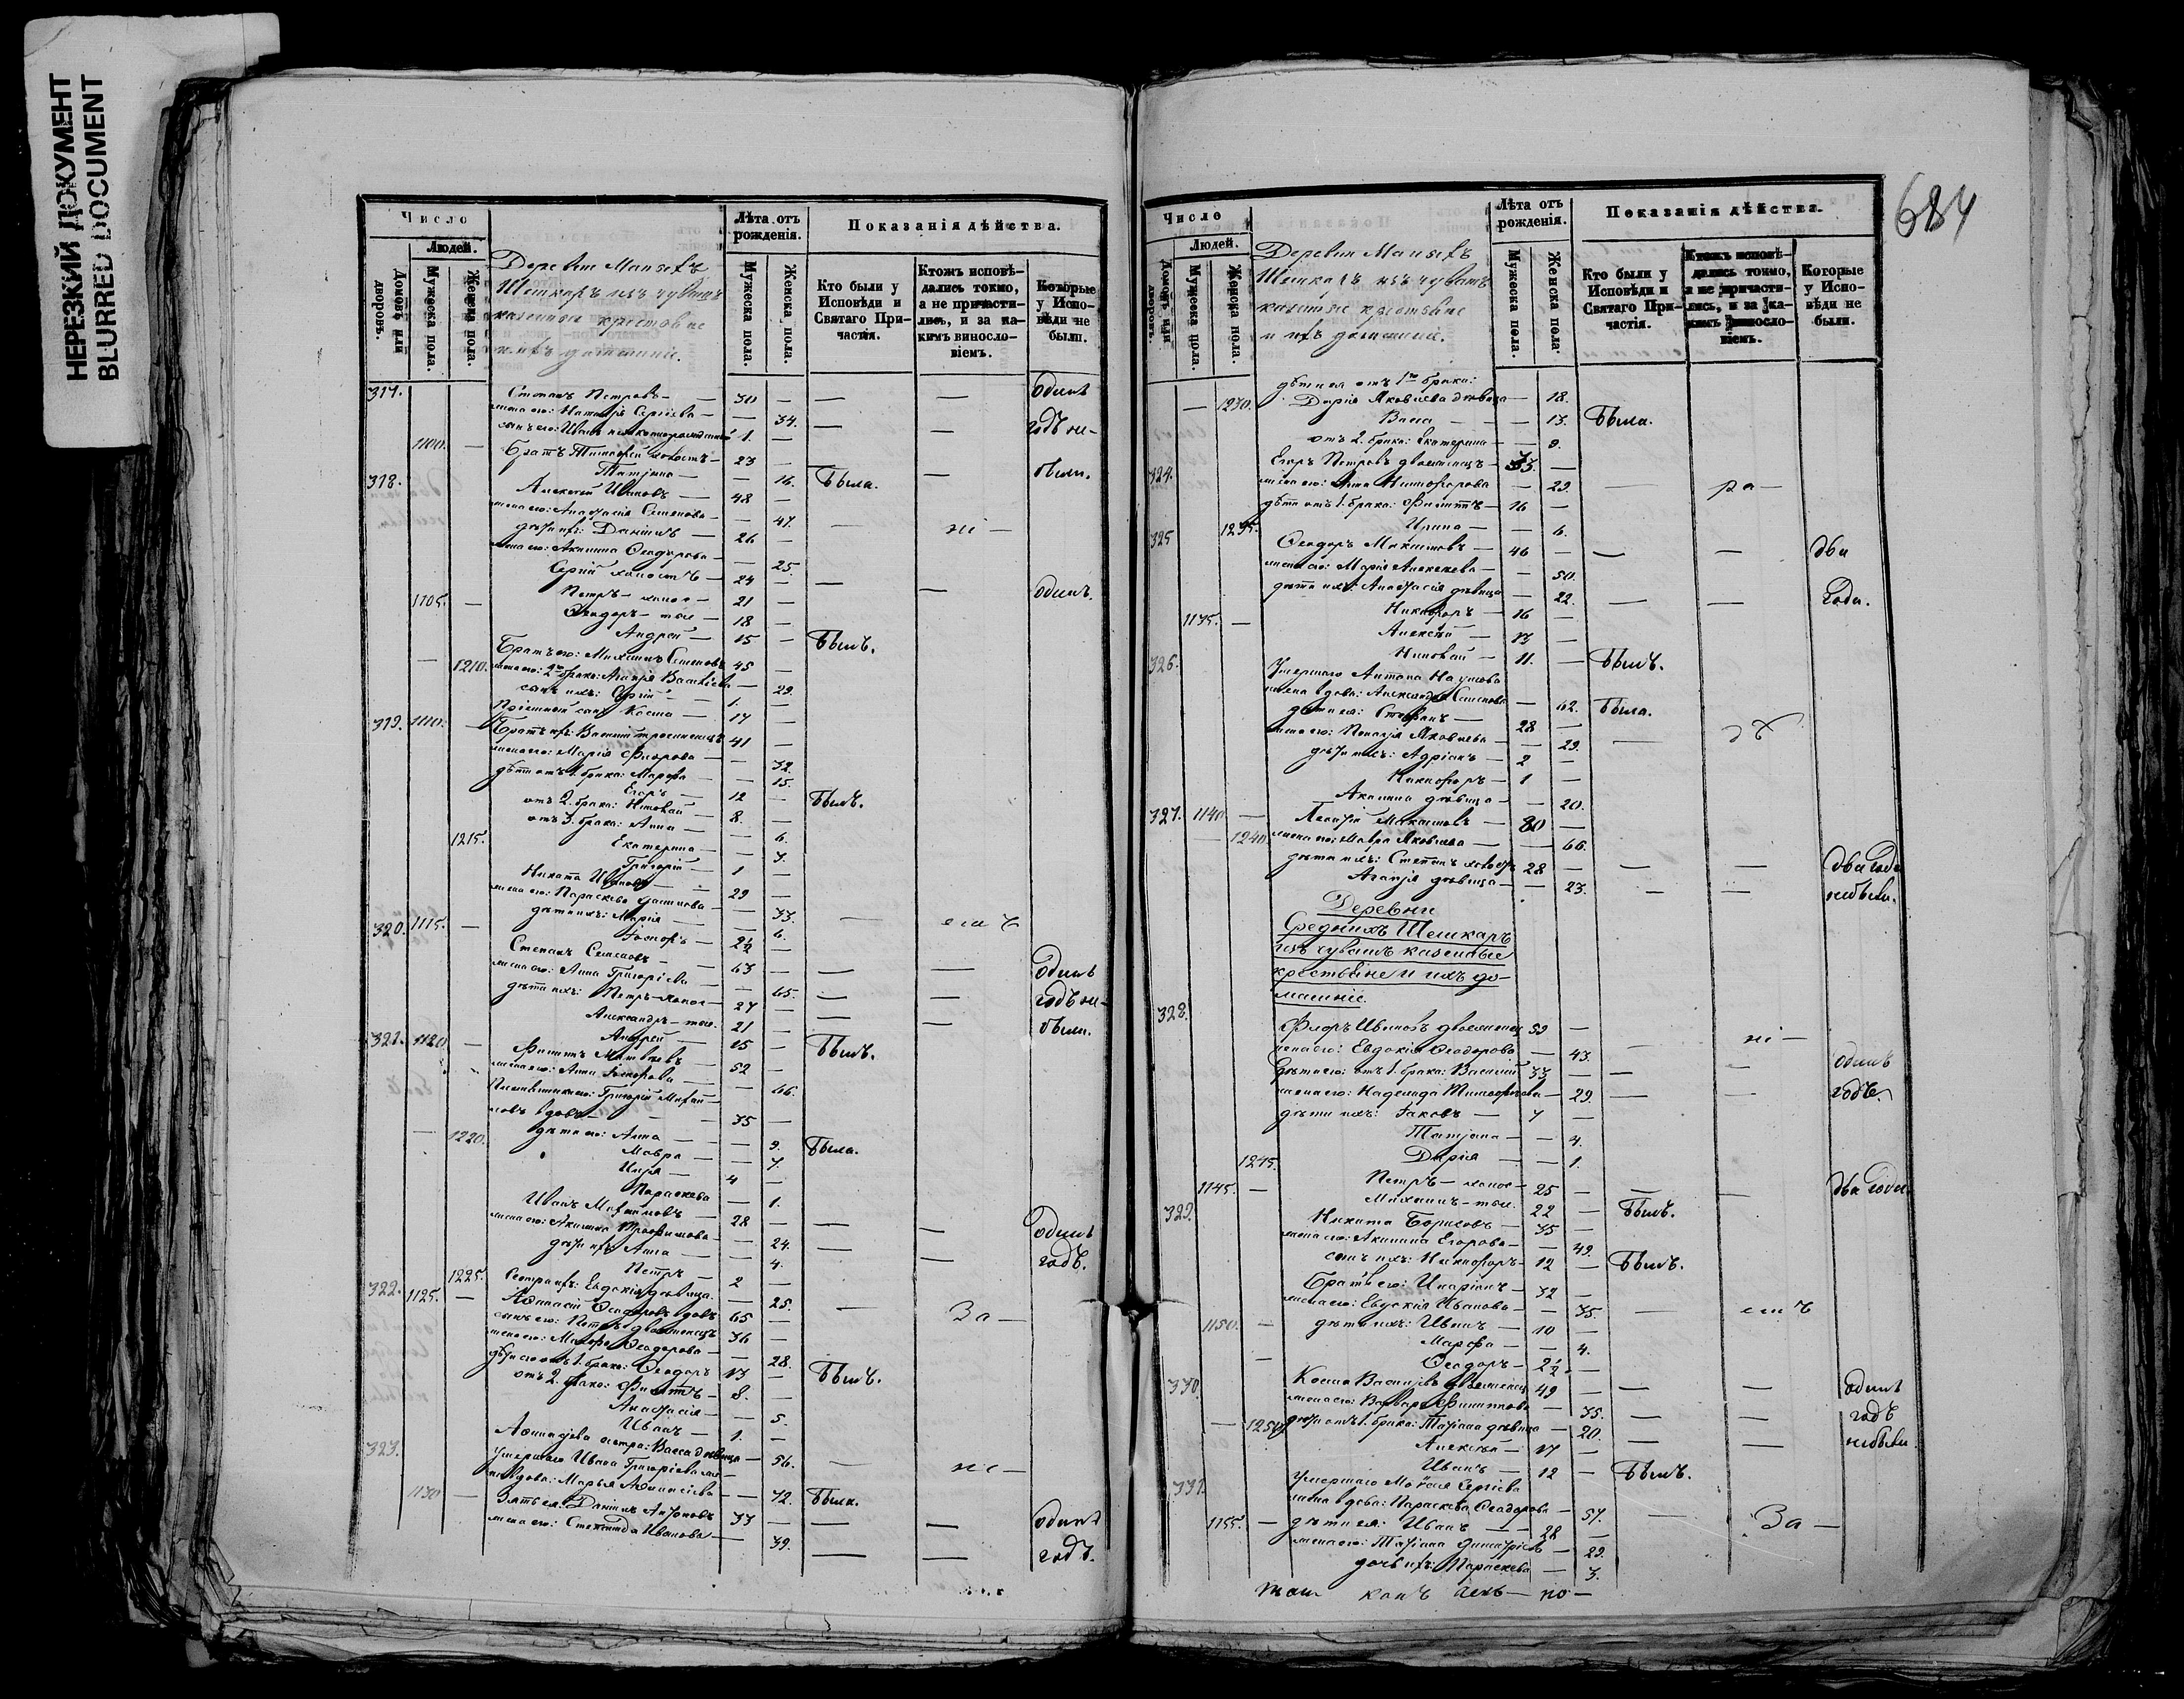 НЕРЕЗКИЙ ДОКУМЕНТ
BLURRED DOCUMENT
Число
Людей.
Домовъ или дворовъ.
Мужеска пола.
Женска пола.
Деревни Малыхъ
Шешкаръ изъ чувашъ
казенные крестьяне
и ихъ домашніе.
Лѣта отъ рожденія.
Мужеска пола.
Женска пола.
Показанія дѣйства.
Кто были у Исповѣди и Святаго Причастія.
Ктожъ исповѣдались токмо, а не причастились, и за какимъ винословіемъ.
Которые у Исповѣди не были.
317. Степанъ Петровъ — 30 — — — одинъ
жена его: Сергіева — — 34. — — годъ не
сынъ его: Иванъ 1. —
1100. — братъ Тимофей холостъ — 23 —
Татіяна — — 16. Была. — были.
318. Алексѣй Ивановъ — 48 —
жена его: Анастасія Семенова — — 47. — не —
дѣти ихъ: Даніилъ — 26 —
жена его: Акилина Ѳеодорова — — 25.
Сергій холостъ — 24 — — — одинъ.
1105. — Петръ — холос — 21 —
Ѳеодоръ — тож — 18 —
Андрей — 15 — Былъ.
Братъ его: Михаилъ Семеновъ 45 —
— 1210. жена его: 2го брака: Агапія Васильева — 29.
сынъ ихъ: Сергій — 1. —
Пріемный сынъ Косма — 17 —
319. 1110. — Братъ ихъ: Василій троеженецъ 41 —
жена его: Марія Фирсова — — 32.
дѣти отъ 1. брака: Марфа — — 15.
Егоръ — 12 — Былъ.
отъ 2. брака: Николай — 8 —
отъ 3. брака: Анна — — 6.
1215. Екатерина — — 3.
Григорій — 1 —
Никита Ивановъ — 29 —
жена его: Параскева Данилова — — 33. — емъ
дѣти ихъ: Марія — — 6.
320. 1115. — 2½ —
Степанъ Семеновъ — 63 — — — одинъ
жена его: Анна Григоріева — — 65. — — годъ не
дѣти ихъ: Петръ — холос — 27 — — — были.
Александръ — тож. 21 —
Андрей — 15 — Былъ.
321. 1120 — Филиппъ Матвѣевъ — 52 —
жена его: Анна — — 46.
Племянникъ его: Григорій
вдовъ — 35 —
дѣти его: Анна — — 9. Была.
— 1220. Мавра — — 7.
Илья — 4 —
Параскева — 1.
Иванъ — 28 — — — одинъ
жена его: Акилина Трофимова — — 24. — — годъ.
дѣти ихъ Анна — — 4.
1225. Петръ — 2 —
Сестра ихъ: Евдокія дѣвица. — 25. — За —
322. 1125. — Аѳанасій Ѳеодоровъ вдовъ 65 —
сынъ его: Петръ двоеженецъ 36 —
жена его: Марфа Ѳеодорова — — 28.
дѣти его отъ 1. брака: Ѳеодоръ 13 — Былъ.
отъ 2. брака: Филиппъ — 8. —
Анастасія — — 5.
Иванъ — 1. —
Аѳанасіева сестра: Васса дѣвица — 56. — не —
323. Умершаго Ивана Григоріева же-
на вдова: Марья Аѳанасіева — — 72. Была.
1130 — Зять ея: Даніилъ 33 — — — одинъ
жена его: Степанида Иванова — 39. — — годъ.

684
Число
Людей.
Домовъ или дворовъ.
Мужеска пола.
Женска пола.
Деревни Малыхъ
Шешкаръ изъ чувашъ
казенные крестьяне
и ихъ домашніе.
Лѣта отъ рожденія.
Мужеска пола.
Женска пола.
Показанія дѣйства.
Кто были у Исповѣди и Святаго Причастія.
Ктожъ исповѣдались токмо, а не причастились, и за какимъ винословіемъ.
Которые у Исповѣди не были.
дѣти ея отъ 1го брака:
— 1230. Дарія Яковлева дѣвица — 18.
Васса — — 13. Была.
отъ 2. брака: Екатерина — — 9.
324. Егоръ Петровъ двоеженецъ — 33. —
жена его: Анна Никифорова — 29. — ра —
дѣти отъ 1. брака: Филиппъ — 16 —
1235. Ирина — — 6.
325 Ѳеодоръ Максимовъ — 46 — — — два
жена его: Марія Алексеева — — 50.
дѣти ихъ: Анастасія дѣвица — 22. — — года.
1135. — Никифоръ — 16 —
Алексѣй — 13 —
Николай — 11. — Былъ.
326. Умершаго Антона Наумова
жена вдова: Александра Семенова — 62. Была.
дѣти ея: Стефанъ — 28 —
жена его: Пелагія Яковлева — — 29.
дѣти ихъ: Адріанъ — 2 —
Никифоръ — 1 —
Акилина дѣвица — — 20.
327. 1140 — Максимовъ — 80 —
1240 жена его: Мавра Яковлева — — 66.
дѣти ихъ: Степанъ холостъ 28 — — — два года
Агапія дѣвица — — 23. — — не были.
Деревни
Среднихъ Шешкаръ
изъ чувашъ казенные
крестьяне и ихъ до-
машніе.
328. Ивановъ двоеженец 59 —
жена его: Евдокія Ѳеодорова — 43. — не —
Дѣти его: отъ 1. брака: Василій 33 — — — одинъ
жена его: Надежда Тимофеева — 29. — — годъ.
дѣти ихъ: Іаковъ — 7 —
Татіяна — — 4.
1245. Дарія — — 1.
1145. — Петръ — холос — 25 — — — два года
Михаилъ — тож. 22 — Былъ.
329. Никита Борисовъ — 35 —
жена его: Акилина Егорова — — 49.
сынъ ихъ: Никифоръ — 12 — Былъ.
Братъ его: Иларіонъ — 32 —
жена его: Евдокія Иванова — — 35. — емъ
1150. — дѣти ихъ: Иванъ — 10 —
Марфа — — 4.
Ѳеодоръ — 2½ —
330. Косма Васильевъ двоеженец 49 — — — одинъ
жена его: Варвара Филиппова — 35. — — годъ
— 1250 дѣти отъ 1. брака: Татіана дѣвица — 20. — — не были.
Алексѣй — 17 —
Иванъ — 12 — Былъ.
331. Умершаго Моѵсея Сергіева
жена вдова: Параскева Ѳеодорова — 57. — За —
1155. — дѣти ея: Иванъ — 28 —
жена его: Татіана — 29.
дочь ихъ: Параскева — 3.